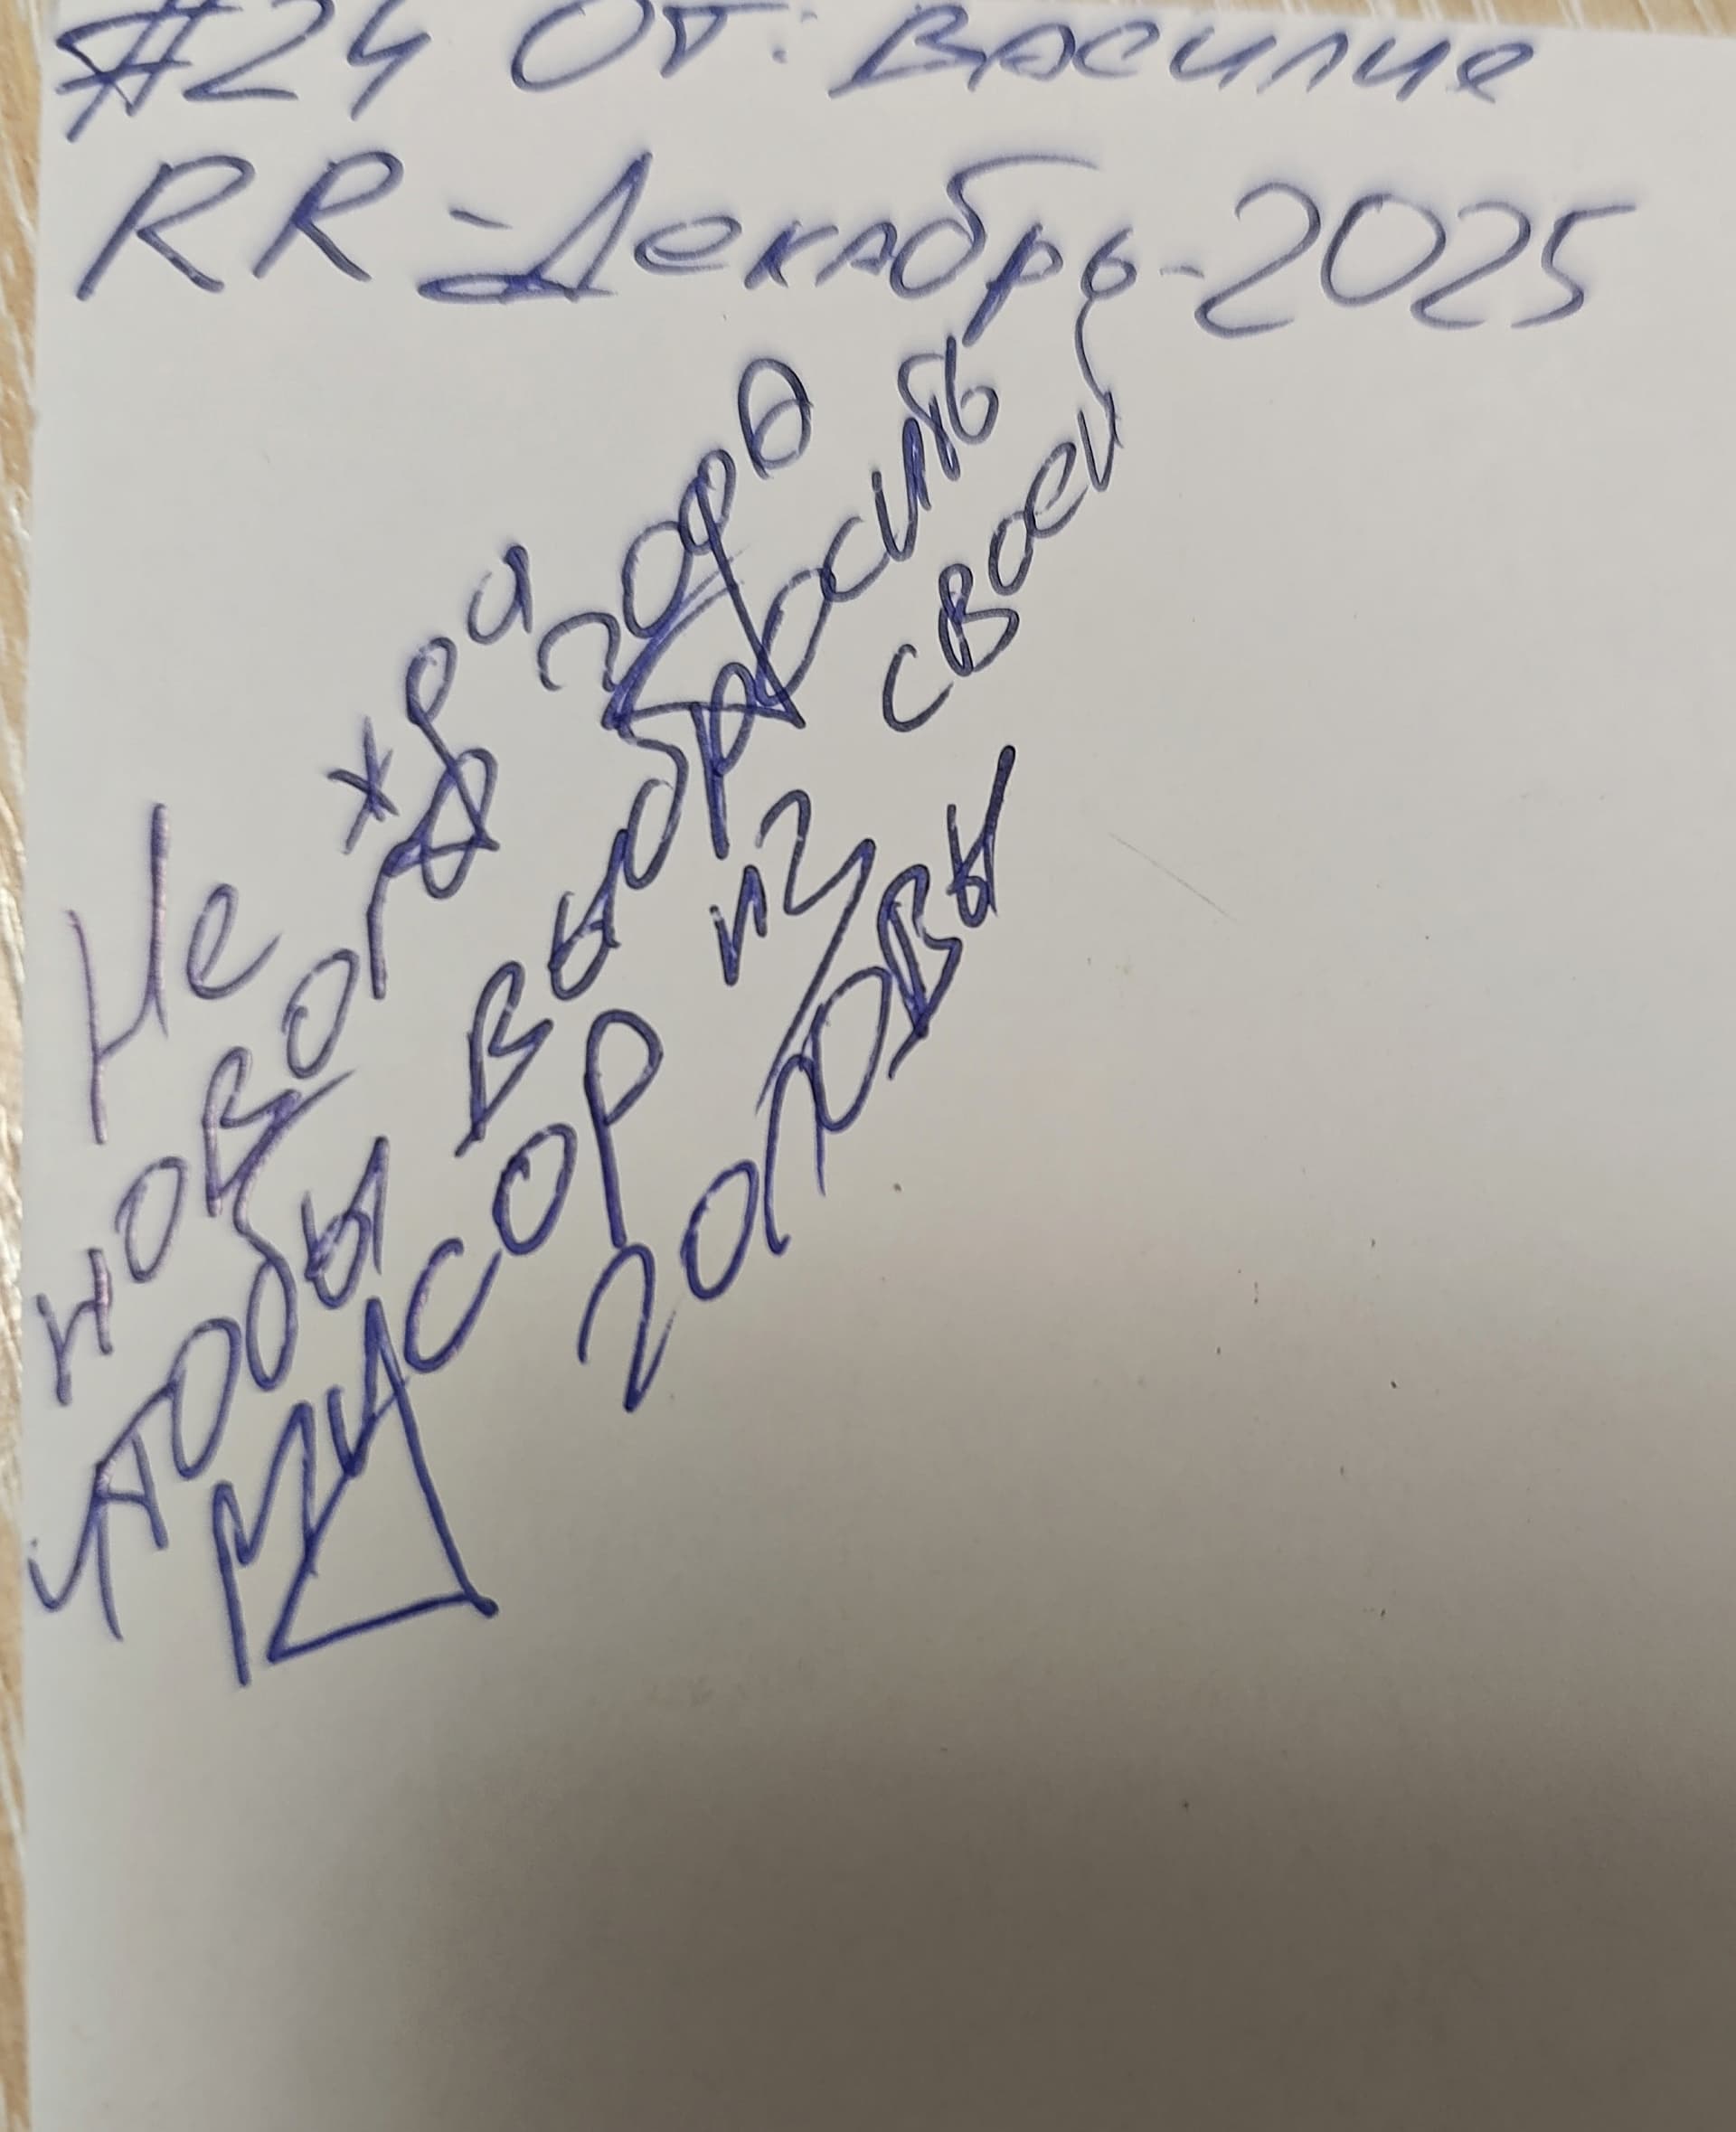 #24 От: Василия
RR-Декабрь-2025
Не жди
нового года
чтобы выбросить
мусор из своей
головы